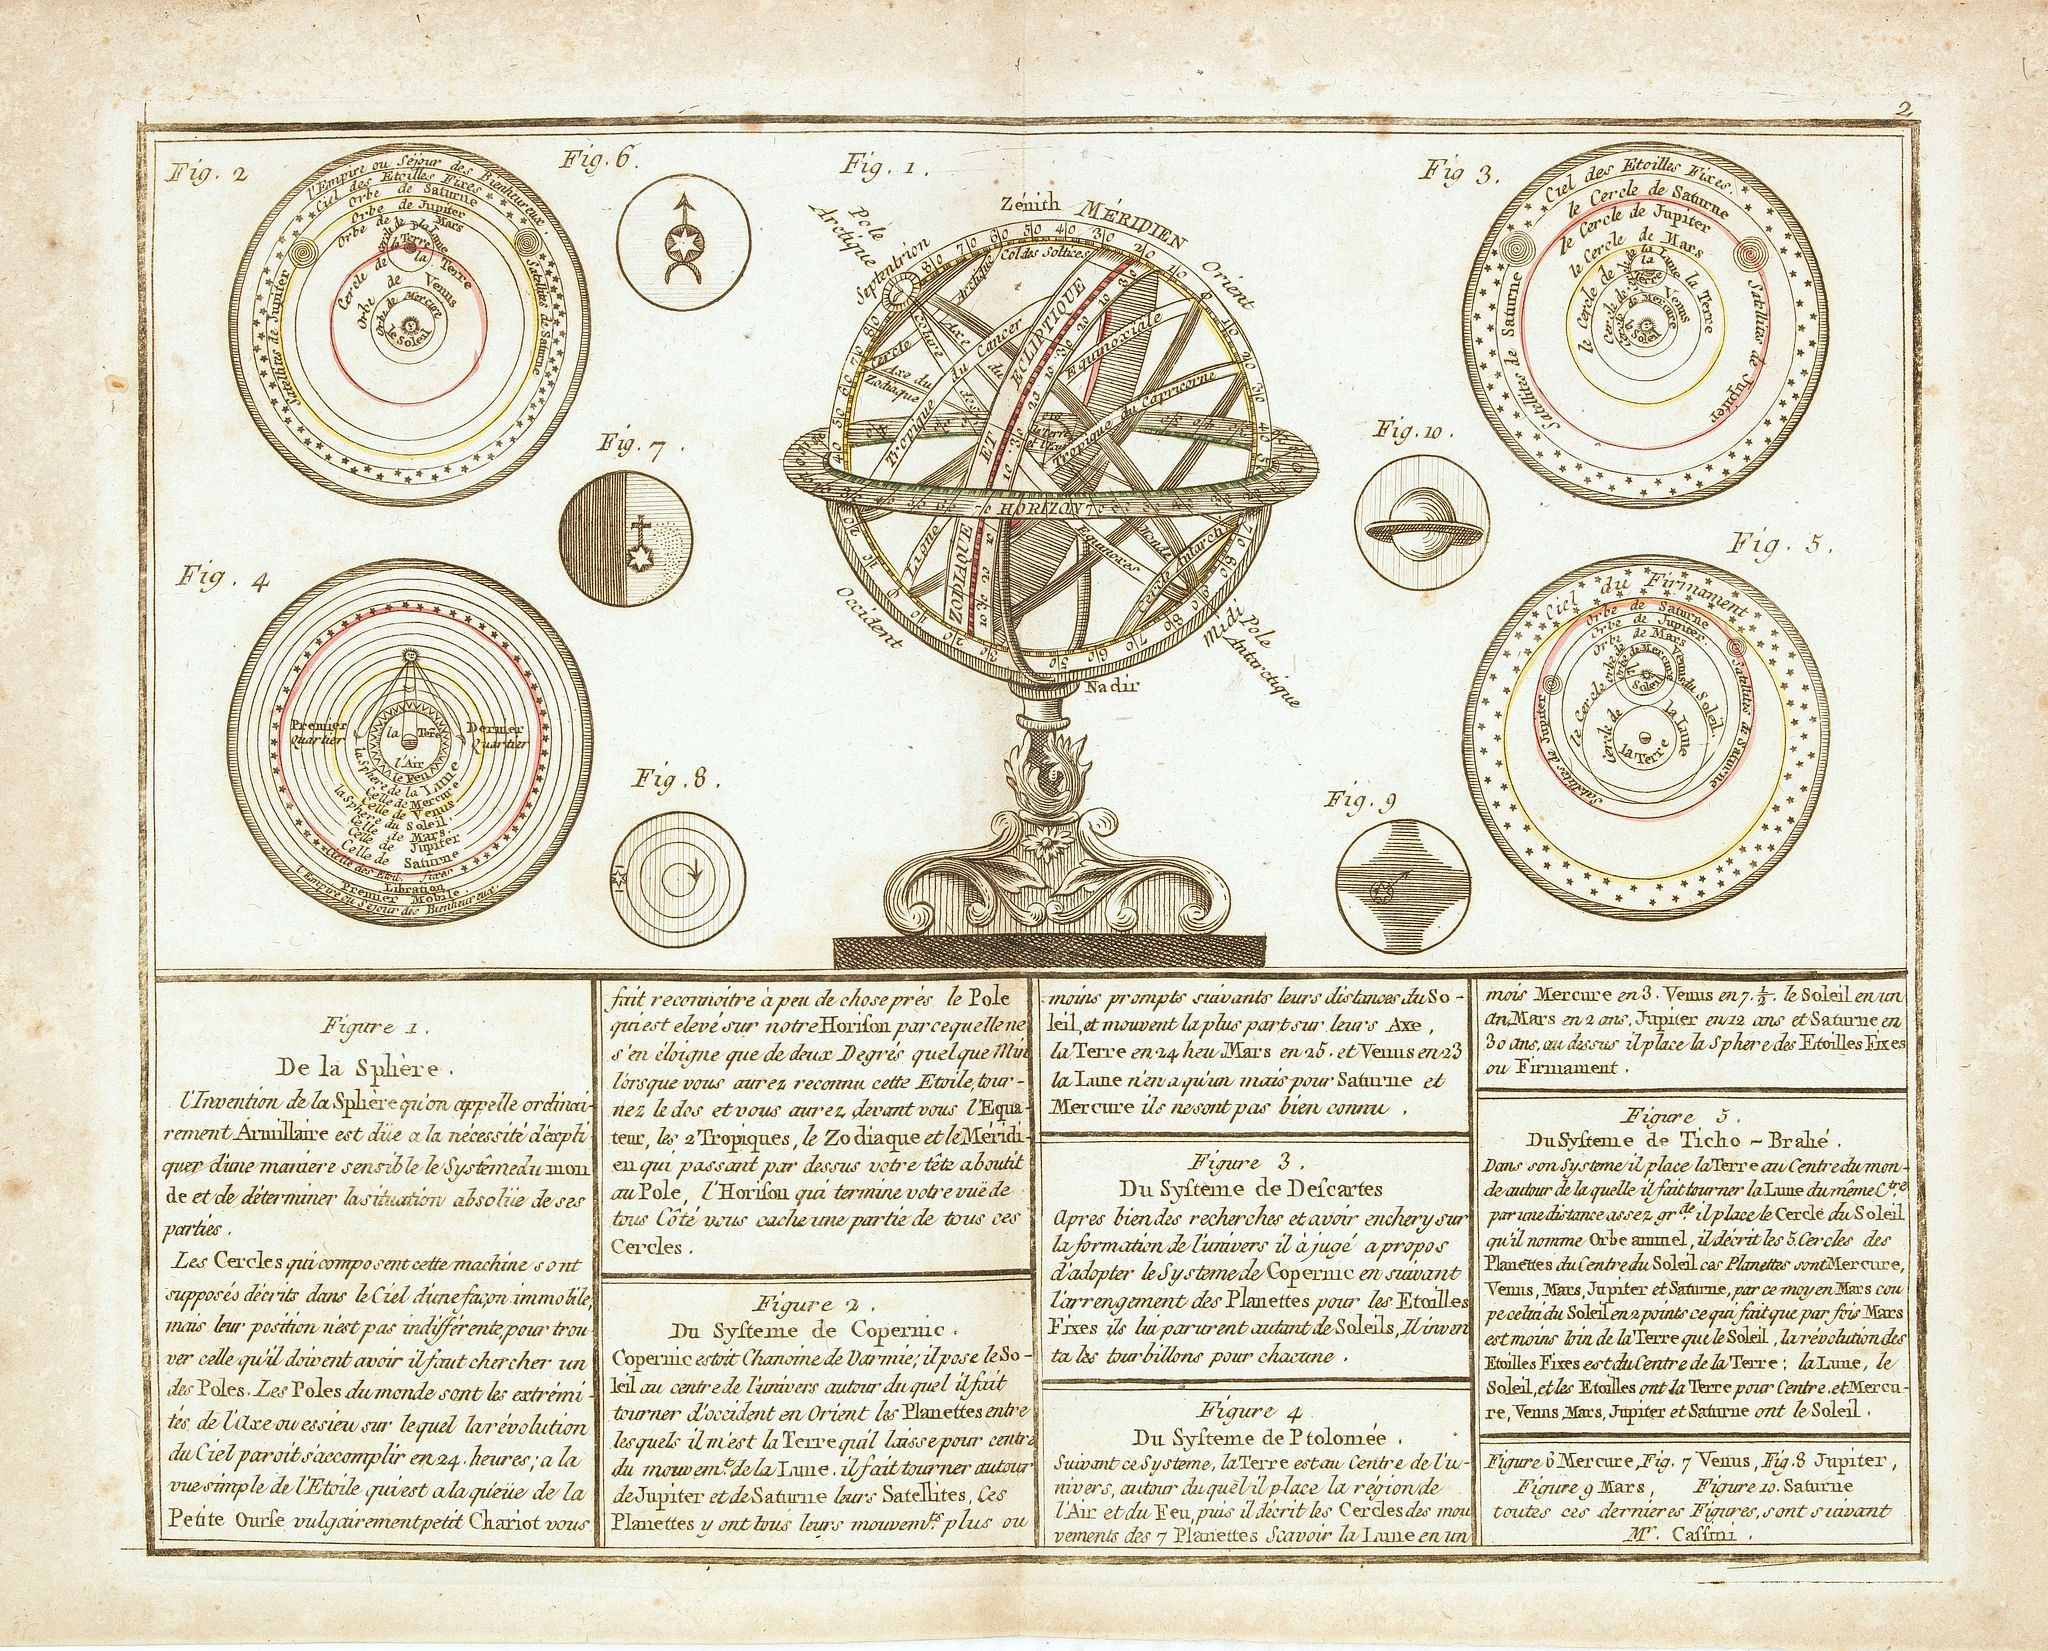 2
Fig. 2
l'Empire ou Séjour des Bienheureux.
Ciel des Etoilles Fixes
Orbe de Saturne
Orbe de Jupiter
Orbe de Mars
la Terre
Cercle de la Terre
Orbe de Venus
Orbe de Mercure
le Soleil
Satellites de Jupiter
Satellites de Saturne
Fig. 6.
Fig. 1.
Zénith
MÉRIDIEN
Pole Arctique
Septentrion
Orient
Col des Soltices
Cercle
Axe du Zodiaque
Tropique du Cancer
ECLIPTIQUE
ET
ZODIAQUE
Equinoxiale
Tropique du Capricorne
HORIZON
Ligne
Occident
Midi
Pole Antarctique
Nadir
Fig 3.
Ciel des Etoilles Fixes.
le Cercle de Saturne
le Cercle de Jupiter
le Cercle de Mars
le Cercle de la Terre
Venus
Mercure
le Soleil
Satellites de Saturne
Satellites de Jupiter
Fig. 7.
Fig. 10.
Fig. 4
Premier Quartier
Dernier Quartier
la Terre
l'Air
le Feu
la Sphere de la Lune
Celle de Mercure
Celle de Venus
la Spherie du Soleil
Celle de Mars.
Celle de Jupiter
Celle de Saturne
Celle des Etoil. fixes
Libration
Premier Mobile.
l'Empire ou Sejour des Bienheureux.
Fig. 5.
Ciel du Firmament
Orbe de Saturne
Orbe de Jupiter
Orbe de Mars
Orbe de Mercure
Venus
Soleil
le Cercle du Soleil.
Cercle de la Lune
la Terre
Satellites de Jupiter
Satellites de Saturne
Fig. 8.
Fig. 9
Figure 1.
De la Sphère.
l'Invention de la Sphère qu'on appelle ordinai-
rement Armillaire est düe a la nécessité d'expli-
quer d'une maniere sensible le Systême du mon
de et de déterminer la situation absolüe de ses
parties.
Les Cercles qui composent cette machine sont
supposés décrits dans le Ciel d'une façon immobile,
mais leur position n'est pas indifférente, pour trou-
ver celle qu'il doivent avoir il faut chercher un
des Poles. Les Poles du monde sont les extrémi-
tés de l'Axe ou essieu sur lequel la révolution
du Ciel paroit s'accomplir en 24. heures; a la
vue simple de l'Etoile qui est a la quëüe de la
Petite Ourse vulgairement petit Chariot vous
fait reconnoitre à peu de chose prés le Pole
qui est elevé sur notre Horison parcequ'elle ne
s'en éloigne que de deux Degrés quelque Min
lorsque vous aurez reconnu cette Etoile, tour-
nez le dos et vous aurez devant vous l'Equa-
teur, les 2 Tropiques, le Zodiaque et le Méridi-
en qui passant par dessus votre tête aboutit
au Pole, l'Horison qui termine votre vuë de
tous Côté vous cache une partie de tous ces
Cercles.
Figure 2.
Du Systeme de Copernic.
Copernic estoit Chanoine de Varmie; il pose le So-
leil au centre de l'univers autour du quel il fait
tourner d'occident en Orient les Planettes entre
lesquels il m'est la Terre qu'il laisse pour centre
du mouvemt. de la Lune. il fait tourner autour
de Jupiter et de Saturne leurs Satellites, Ces
Planettes y ont tous leurs mouvemts. plus ou
moins prompts suivants leurs distances du So-
leil, et mouvent la plus part sur leurs Axe,
la Terre en 24 heu. Mars en 25. et Venus en 23
la Lune n'en a qu'un mais pour Saturne et
Mercure ils ne sont pas bien connu.
Figure 3.
Du Systeme de Descartes
Apres bien des recherches et avoir enchery sur
la formation de l'univers il à jugé a propos
d'adopter le Systeme de Copernic en suivant
l'arrengement des Planettes pour les Etoilles
Fixes ils lui parurent autant de Soleils, Il inven
ta les tourbillons pour chacune.
Figure 4
Du Systeme de Ptolomée.
Suivant ce Systeme, la Terre est au Centre de l'u-
nivers, autour du quel il place la région de
l'Air et du Feu, puis il décrit les Cercles des mou
vements des 7 Planettes Scavoir la Lune en un
mois Mercure en 3. Venus en 7. ½. le Soleil en un
an, Mars en 2 ans, Jupiter en 12 ans et Saturne en
30 ans, au dessus il place la Sphere des Etoilles Fixes
ou Firmament.
Figure 5.
Du Systeme de Ticho-Brahé.
Dans son Systeme il place la Terre au Centre du mon-
de autour de la quelle il fait tourner la Lune du même Ctre
par une distance assez grde. il place le Cercle du Soleil
qu'il nomme Orbe annuel, il décrit les 5. Cercles des
Planettes du Centre du Soleil ces Planettes sont Mercure,
Venus, Mars, Jupiter et Saturne, par ce moyen Mars cou
pe celui du Soleil en 2 points ce qui fait que par fois Mars
est moins loin de la Terre que le Soleil, la révolution des
Etoilles Fixes est du Centre de la Terre; la Lune, le
Soleil, et les Etoilles ont la Terre pour Centre. et Mercu-
re, Venus, Mars, Jupiter et Saturne ont le Soleil.
Figure 6 Mercure, Fig. 7 Venus, Fig. 8 Jupiter,
Figure 9 Mars, Figure 10. Saturne
toutes ces dernieres Figures, sont suivant
Mr. Cassini.